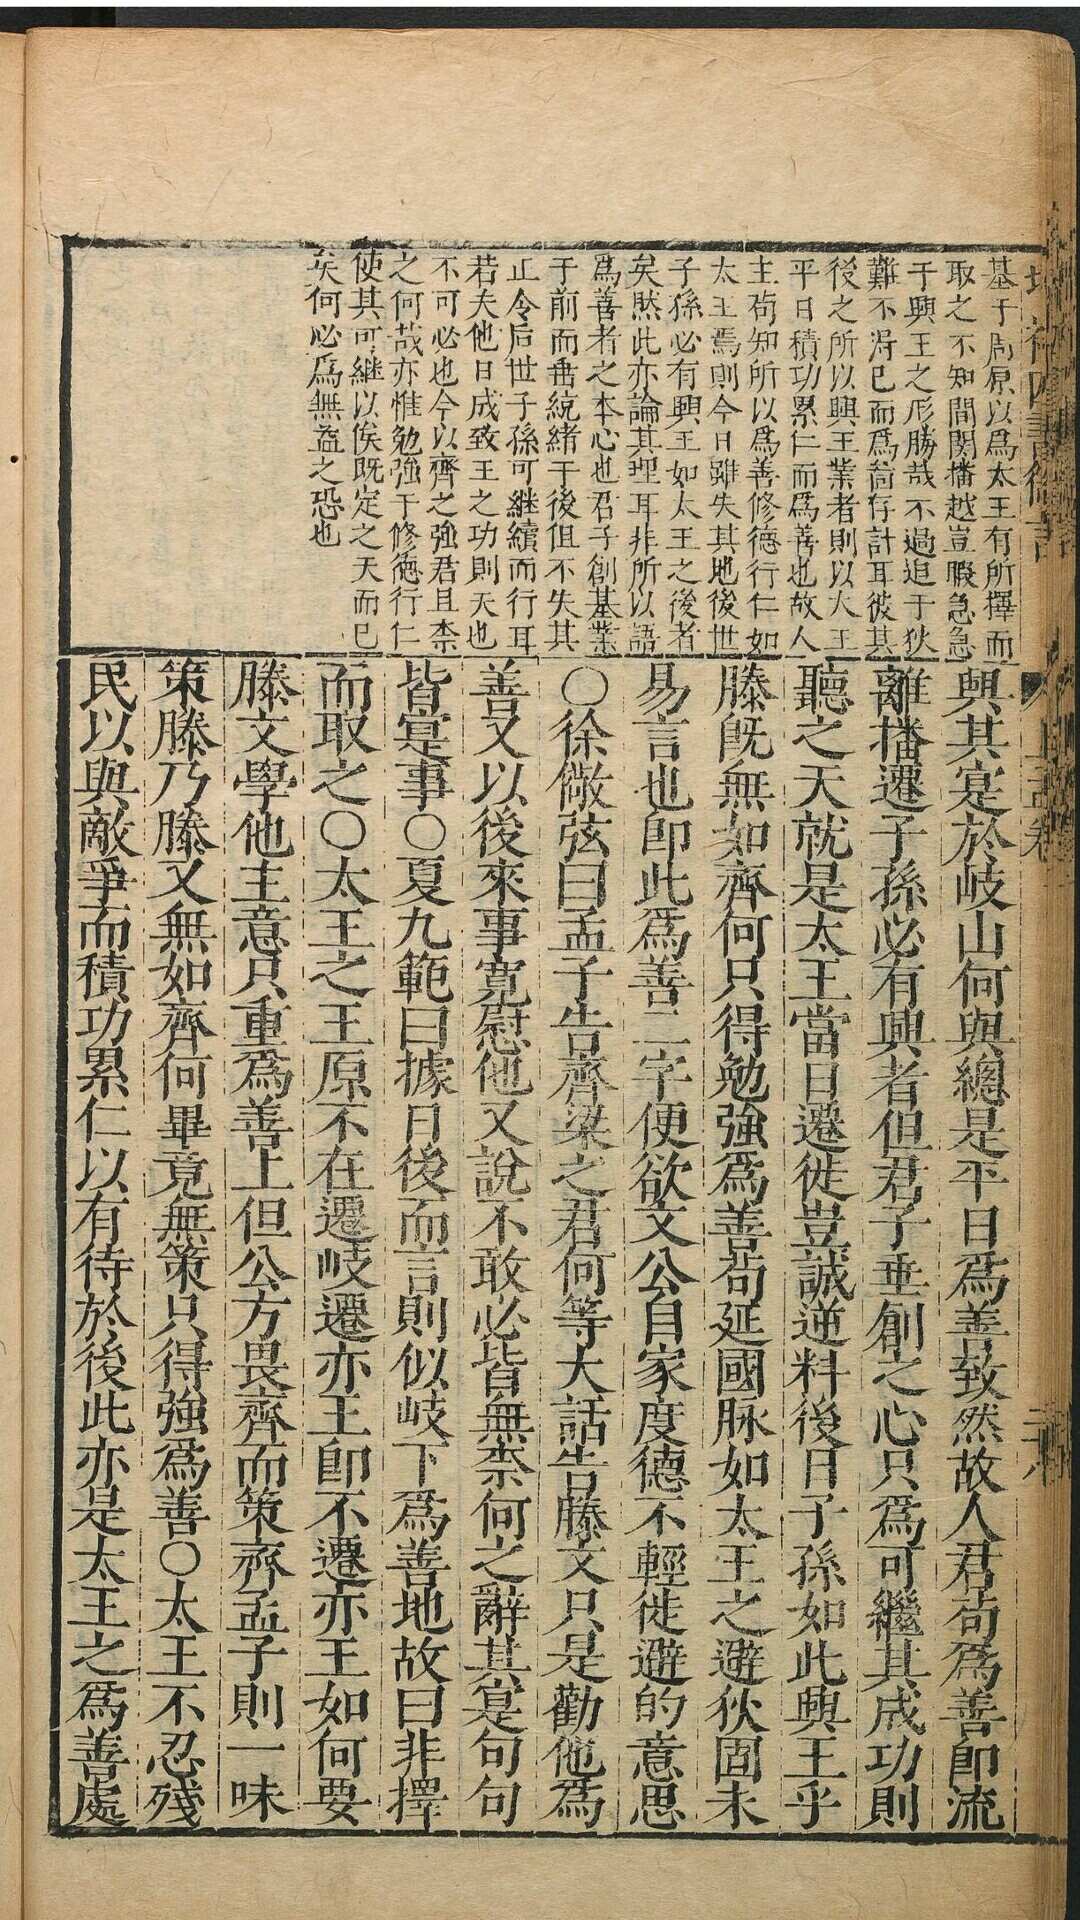 基于周原以爲太王有所擇而
取之不知間関播越豈暇急急
于興王之形勝哉不過迫于狄
難不淂已而爲苟存計耳彼其
後之所以興王業者則以太王
平日積功累仁而爲善也故人
主苟知所以爲善修德行仁如
太王焉則今日雖失其地後世
子孫必有興王如太王之後者
矣然此亦論其理耳非所以語
爲善者之本心也君子創基業
于前而垂統緒于後但不失其
正令后世子孫可継續而行耳
若夫他日成致王之功則天也
不可必也今以齊之強君且柰
之何哉亦惟勉強于修德行仁
使其可継以俟既定之天而已
矣何必爲無益之恐也
興其寔於岐山何與總是平日爲善致然故人君苟爲善卽流
離播遷子孫必有興者但君子垂創之心只爲可繼其成功則
聽之天就是太王當日遷徙豈誠逆料後日子孫如此興王乎
滕旣無如齊何只得勉強爲善苟延國脉如太王之避狄固未
易言也卽此爲善二字便欲文公自家度德不輕徙避的意思
○徐儆弦曰孟子告齊梁之君何等大話告滕文只是勸他爲
善又以後來事寛慰他又說不敢必皆無柰何之辭其寔句句
皆寔事○夏九範曰據日後而言則似岐下爲善地故曰非擇
而取之○太王之王原不在遷岐遷亦王卽不遷亦王如何要
滕文學他主意只重爲善上但公方畏齊而策齊孟子則一味
策滕乃滕又無如齊何畢竟無策只得強爲善○太王不忍殘
民以與敵爭而積功累仁以有待於後此亦是太王之爲善處